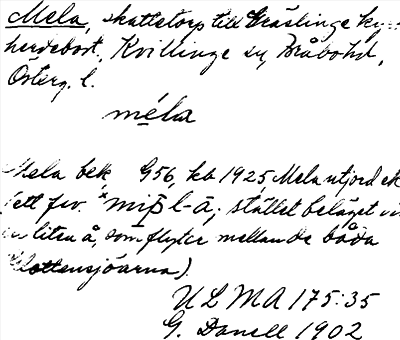 Mela, skattetorp till Gräslinge ky
herdebost., Kvillinge sn, Bråbo hd,
Österg. l.
méla
Mela bek. G56, kb 1925, Mela utjord ek
ett fsv. *miþl-ā; stället beläget vi
liten å, som flyter mellan de båda
Glottensjöarna).
ULMA 175:35
G. Danell 1902